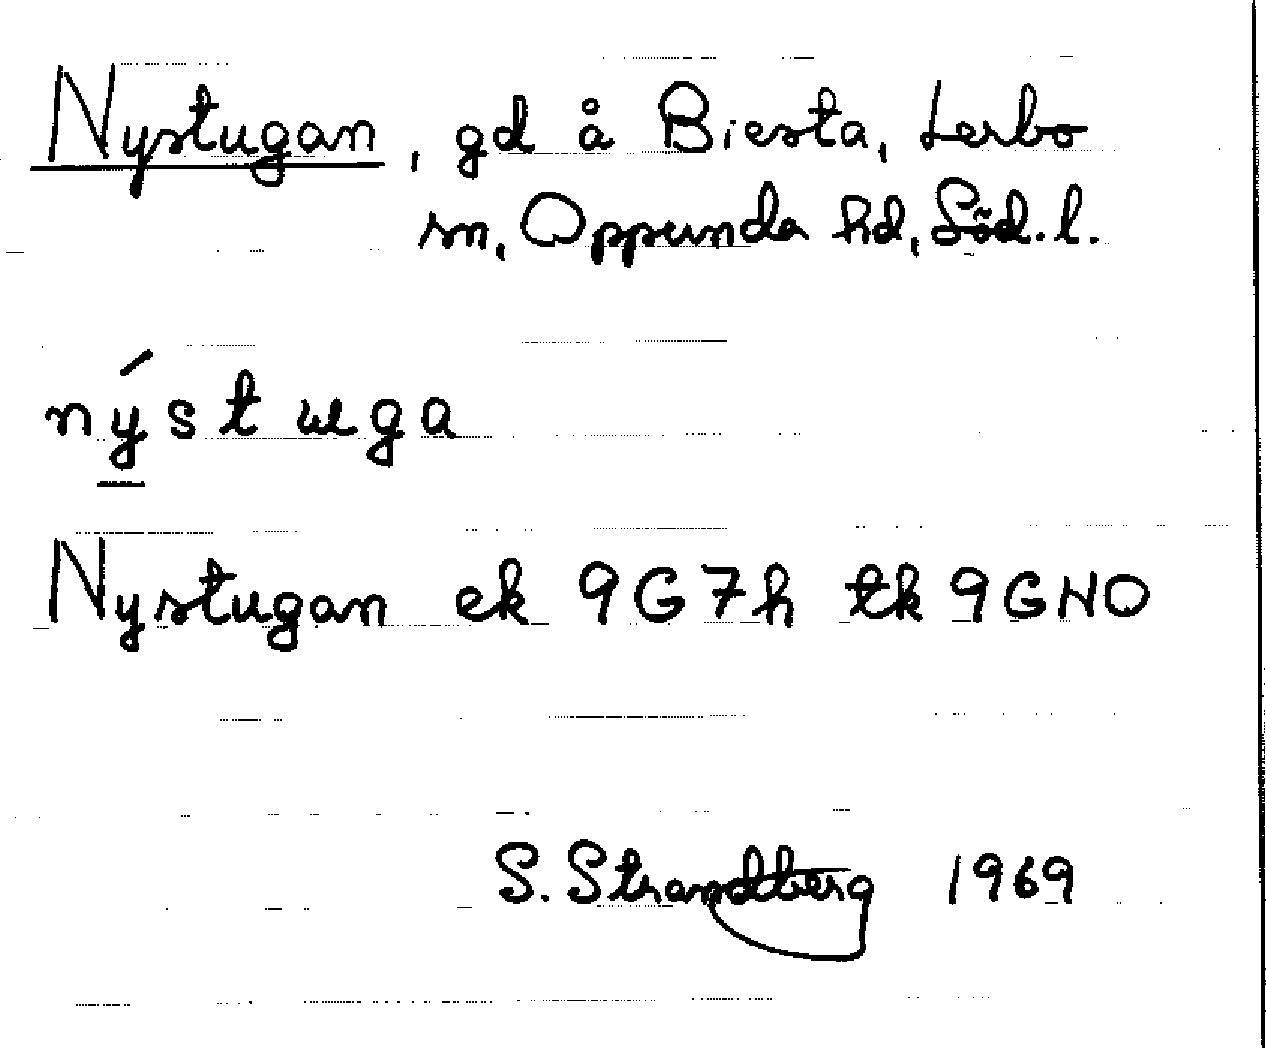 Nystugan, gd å Biesta, Lerbo
sn, Oppunda hd, Söd. l.
nýstuga
Nystugan ek 9G7h tk 9GNO
S. Strandberg 1969